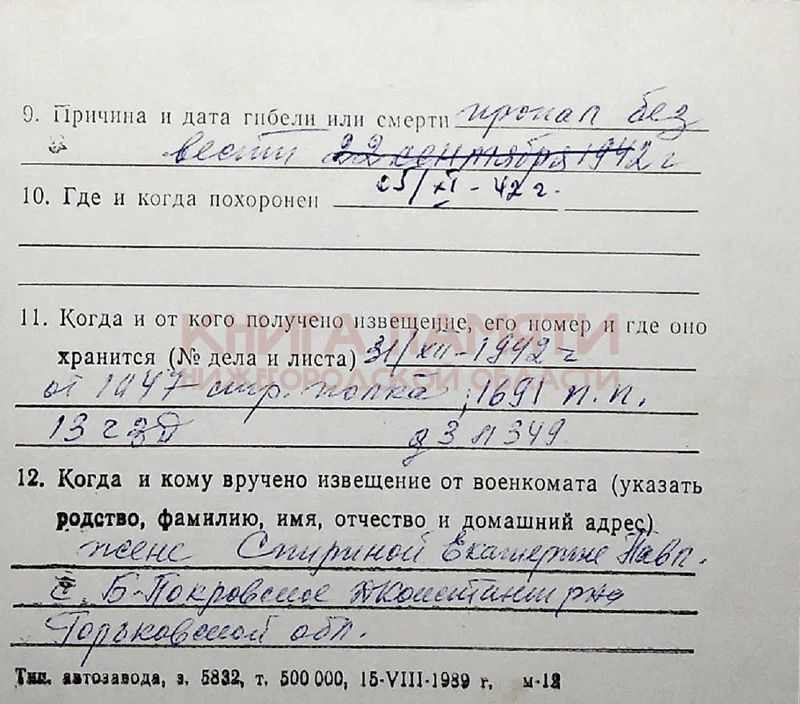 9. Причина и дата гибели или смерти пропал без
вести 22 сентября 1942 г
25/XI-42 г.
10. Где и когда похоронен
11. Когда и от кого получено извещение, его номер и где оно
КНИГА ПАМЯТИ
хранится (№ дела и листа) 31/XII-1942 г
НИЖЕГОРОДСКОЙ ОБЛАСТИ
от 1047 стр. полка; 1691 п.п.
д 3 л 349
12. Когда и кому вручено извещение от военкомата (указать
родство, фамилию, имя, отчество и домашний адрес)
жене Спириной Екатерине Павл.
с. Б-Покровское
Горьковской обл.
Тип. автозавода, з. 5832, т. 500 000, 15-VIII-1989 г. м-12